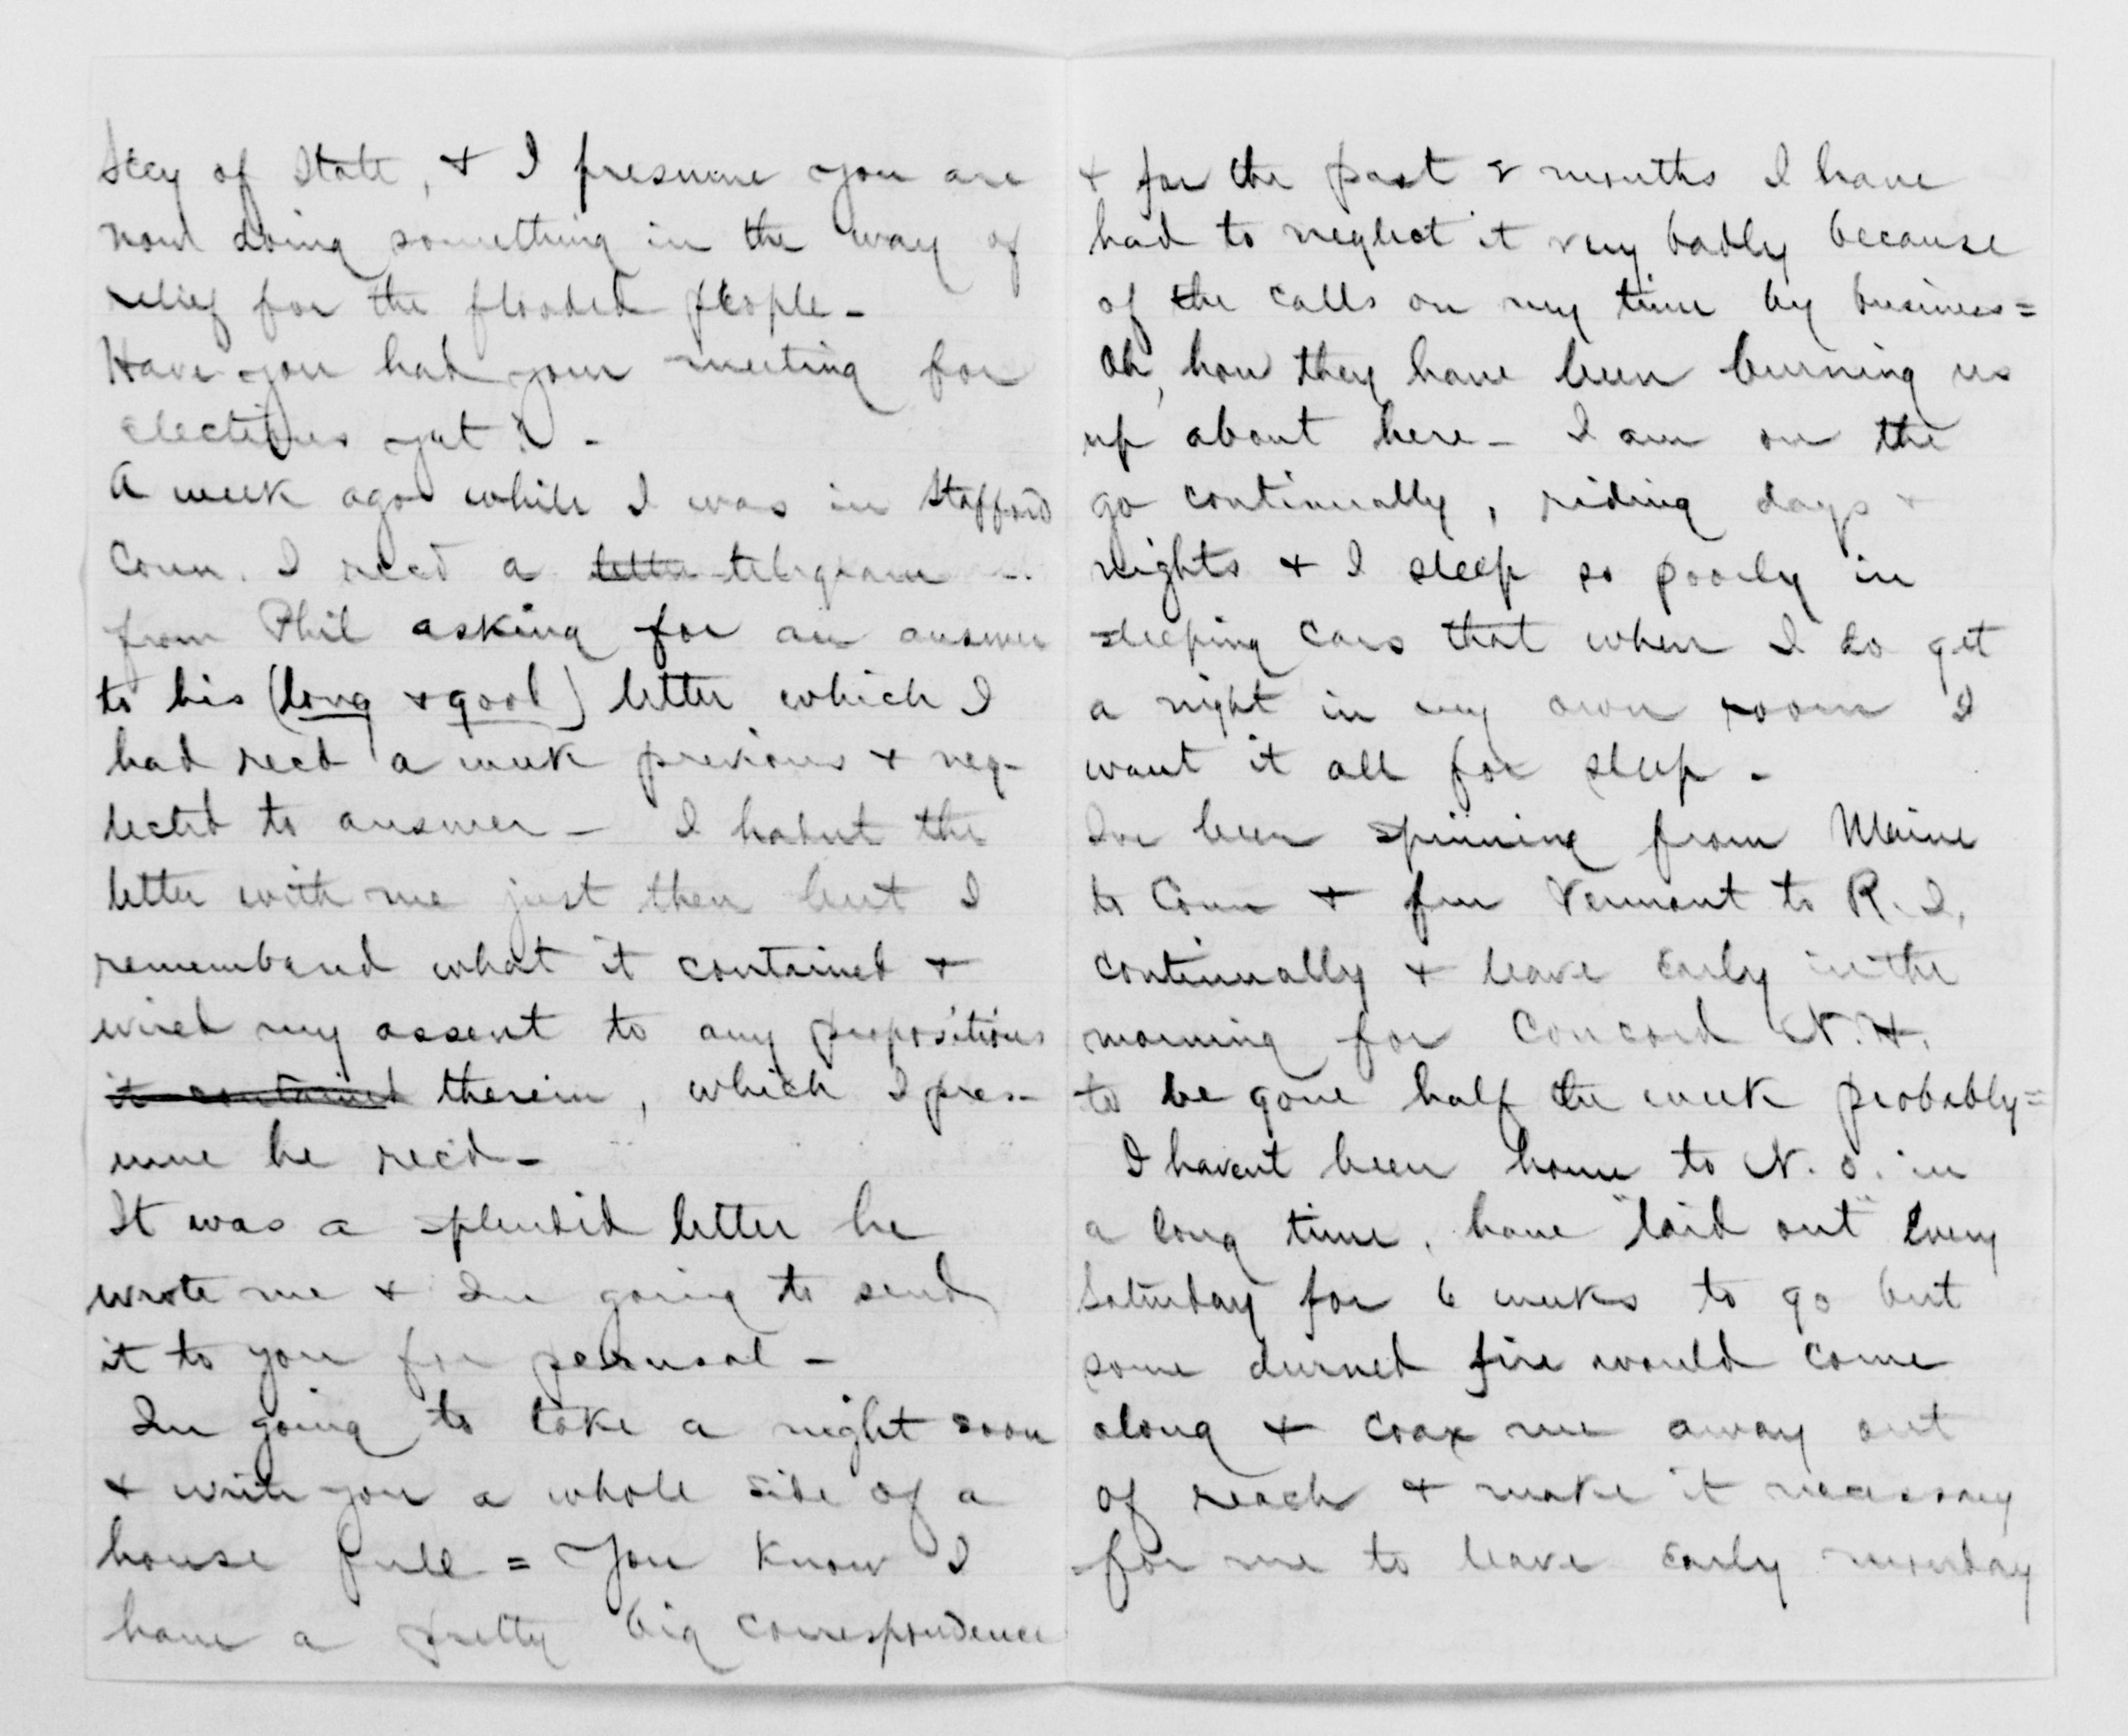 Secy of State, & I presume you are
now doing something in the way of
relief for the flooded people -
Have you had your meeting for
elections yet? -
A week ago while I was in Stafford
Conn. I recd a letter telegram
from Phil asking for an answer
to his (long & good) letter which I
had recd a week previous & neg-
lected to answer - I hadnt the
letter with me just then but I
remembered what it contained &
wired my assent to any propositions
it contained therein, which I pres-
ume he rec'd -
It was a splendid letter he
wrote me & Im going to send
it to you for perusal -
Im going to take a night soon
& write you a whole side of a
house full = You know I
have a pretty big correspondence
& for the past 2 months I have
had to neglect it very badly because
of the calls on my time by business =
Oh, how they have been burning us
up about here - I am on the
go continually, riding days &
nights & I sleep so poorly in
sleeping cars that when I do get
a night in my own room I
want it all for sleep -
Ive been spinning from Maine
to Conn & fm Vermont to R. I.
continually & leave early in the
morning for Concord N. H.
to be gone half the week probably =
I havent been home to N. O. in
a long time, have "laid out" every
Saturday for 6 weeks to go but
some durned fire would come
along & coax me away out
of reach & make it necessary
for me to leave early monday